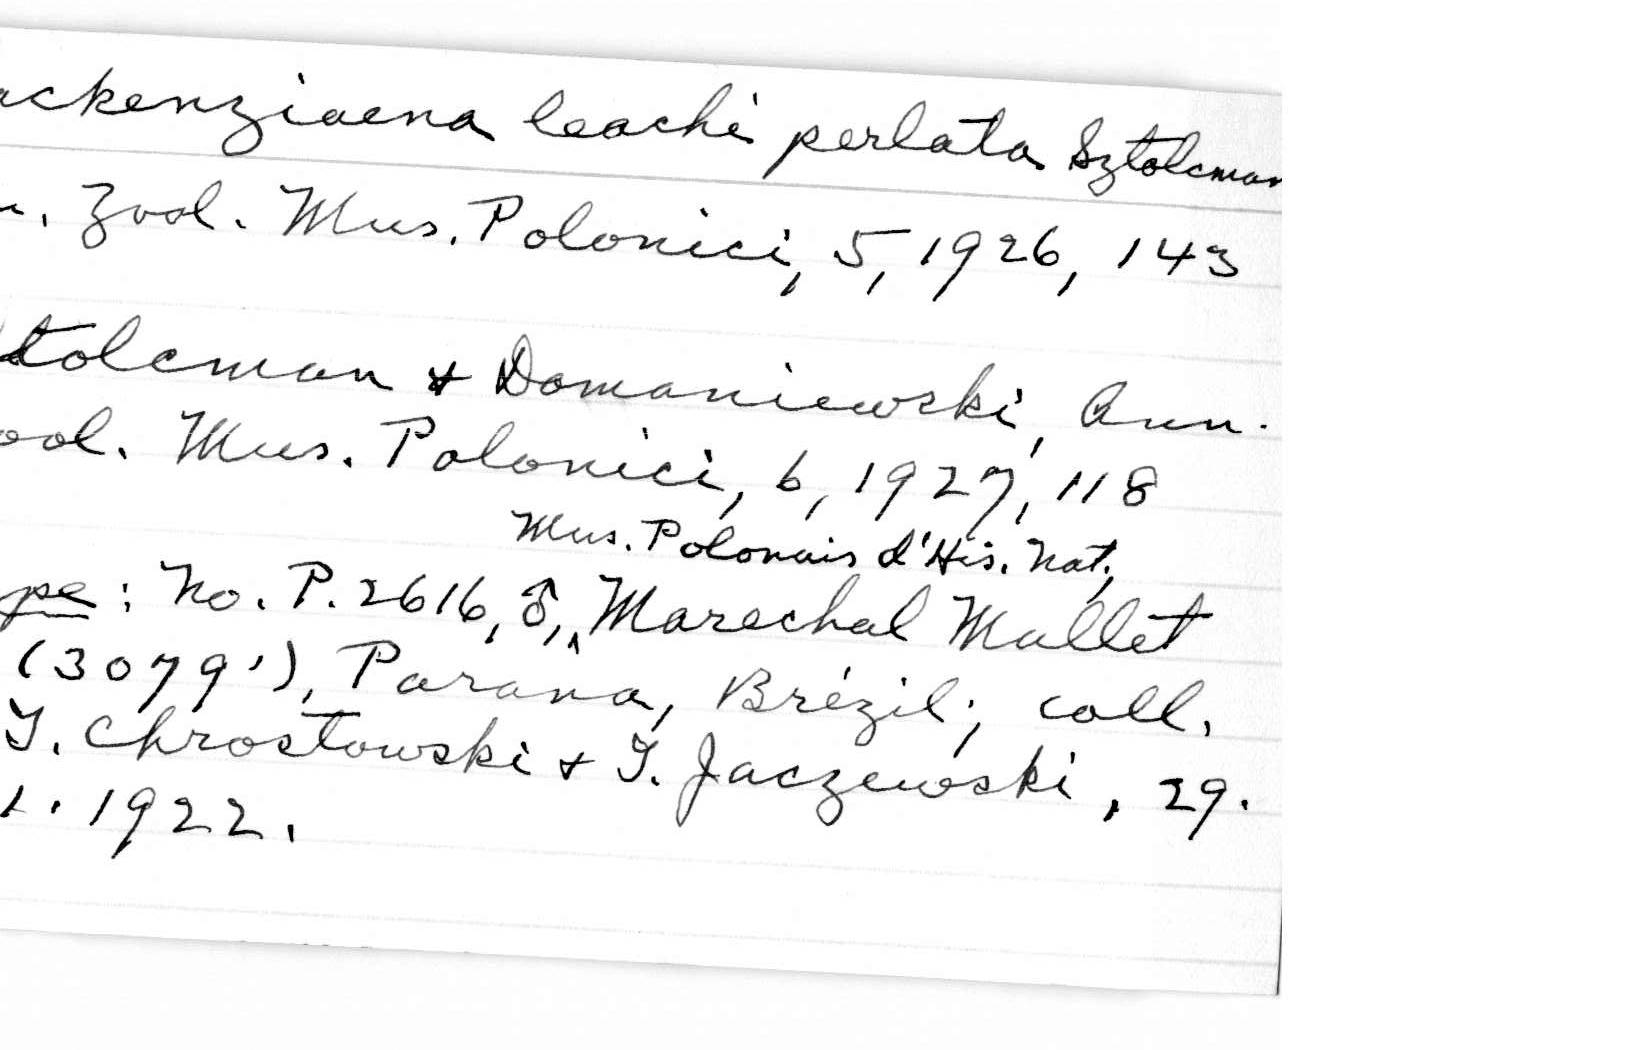 ackenziaena leachi perlata Sztolcman
n. Zool. Mus. Polonici, 5, 1926, 143
tolcman & Domaniewski, Ann.
ool. Mus. Polonici, 6, 1927, 118
Mus. Polonais d'His. Nat.,
pe: No. P. 2616, ♂, ^ Marechal Mallet
(3079'), Parana, Brézil; coll.
T. Chrostowski & T. Jaczewski, 29.
1922.